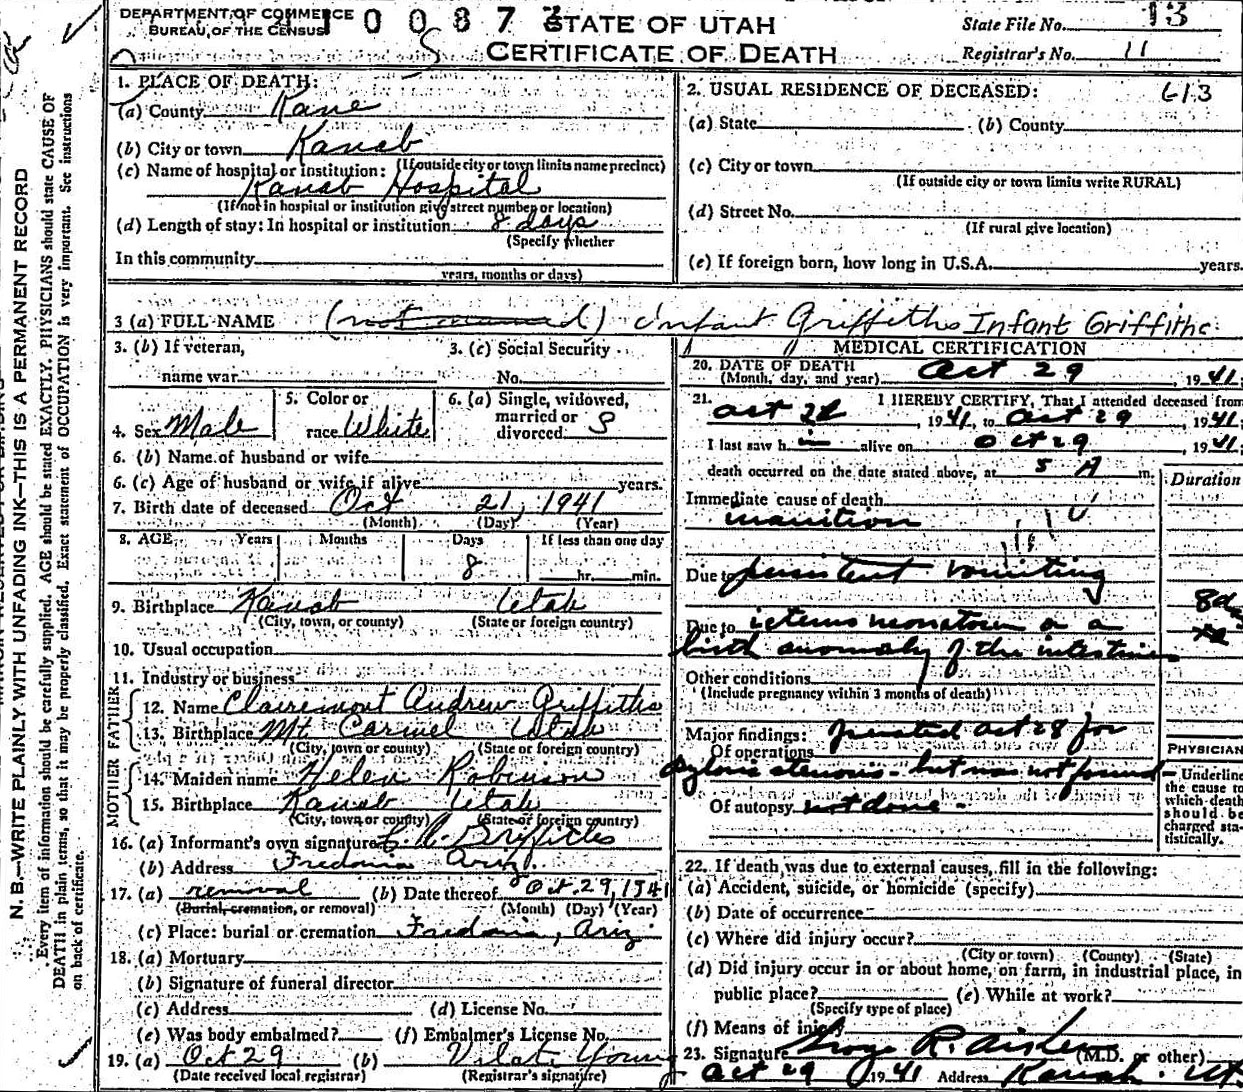 DEPARTMENT OF COMMERCE
BUREAU OF THE CENSUS
1 0 0 8 7
STATE OF UTAH
CERTIFICATE OF DEATH
State File No. 13
Registrar's No. 11
1. PLACE OF DEATH:
(a) County Kane
(b) City or town Kanab
(If outside city or town limits name precinct)
(c) Name of hospital or institution:
Kanab Hospital
(If not in hospital or institution give street number or location)
(d) Length of stay: In hospital or institution 8 days
(Specify whether
In this community
years, months or days)
2. USUAL RESIDENCE OF DECEASED: 613
(a) State (b) County
(c) City or town
(If outside city or town limits write RURAL)
(d) Street No.
(If rural give location)
(e) If foreign born, how long in U.S.A. years.
3 (a) FULL NAME (not named) Infant Griffiths Infant Griffiths
3. (b) If veteran,
name war
3. (c) Social Security
No.
4. Sex Male
5. Color or
race White
6. (a) Single, widowed,
married or
divorced S
6. (b) Name of husband or wife
6. (c) Age of husband or wife if alive years.
7. Birth date of deceased Oct 21, 1941
(Month) (Day) (Year)
8. AGE Years Months Days If less than one day
8 hr. min.
9. Birthplace Kanab Utah
(City, town, or county) (State or foreign country)
10. Usual occupation
11. Industry or business
FATHER
12. Name Clairemont Andrew Griffiths
13. Birthplace Mt. Carmel Utah
(City, town or county) (State or foreign country)
MOTHER
14. Maiden name Helen Robinson
15. Birthplace Kanab Utah
(City, town or county) (State or foreign country)
16. (a) Informant's own signature C. A. Griffiths
(b) Address Fredonia Ariz.
17. (a) removal (b) Date thereof Oct 29, 1941
(Burial, cremation, or removal) (Month) (Day) (Year)
(c) Place: burial or cremation Fredonia, Ariz
18. (a) Mortuary
(b) Signature of funeral director
(c) Address (d) License No.
(e) Was body embalmed? (f) Embalmer's License No.
19. (a) Oct 29 (b) Vilate Young
(Date received local registrar) (Registrar's signature)
MEDICAL CERTIFICATION
20. DATE OF DEATH
(Month, day, and year) Oct 29, 1941;
21. I HEREBY CERTIFY, That I attended deceased from
Oct 21, 1941, to Oct 29, 1941;
I last saw h im alive on Oct 29, 1941;
death occurred on the date stated above, at 5 A m.
Duration
Immediate cause of death
inanition
Due to persistent vomiting
Due to icterus neonatorum or a 8 da
birth anomaly of the intestines
Other conditions
(Include pregnancy within 3 months of death)
Major findings:
Of operations operated Oct 28 for
pyloric stenosis - but was not found
Of autopsy not done -
PHYSICIAN
Underline
the cause to
which death
should be
charged sta-
tistically.
22. If death was due to external causes, fill in the following:
(a) Accident, suicide, or homicide (specify)
(b) Date of occurrence
(c) Where did injury occur?
(City or town) (County) (State)
(d) Did injury occur in or about home, on farm, in industrial place, in
public place? (e) While at work?
(Specify type of place)
(f) Means of injury
23. Signature George R. Aiken (M.D. or other)
Oct 29 1941 Address Kanab Ut
N. B.—WRITE PLAINLY WITH UNFADING INK—THIS IS A PERMANENT RECORD
Every item of information should be carefully supplied. AGE should be stated EXACTLY. PHYSICIANS should state CAUSE OF
DEATH in plain terms, so that it may be properly classified. Exact statement of OCCUPATION is very important. See instructions
on back of certificate.